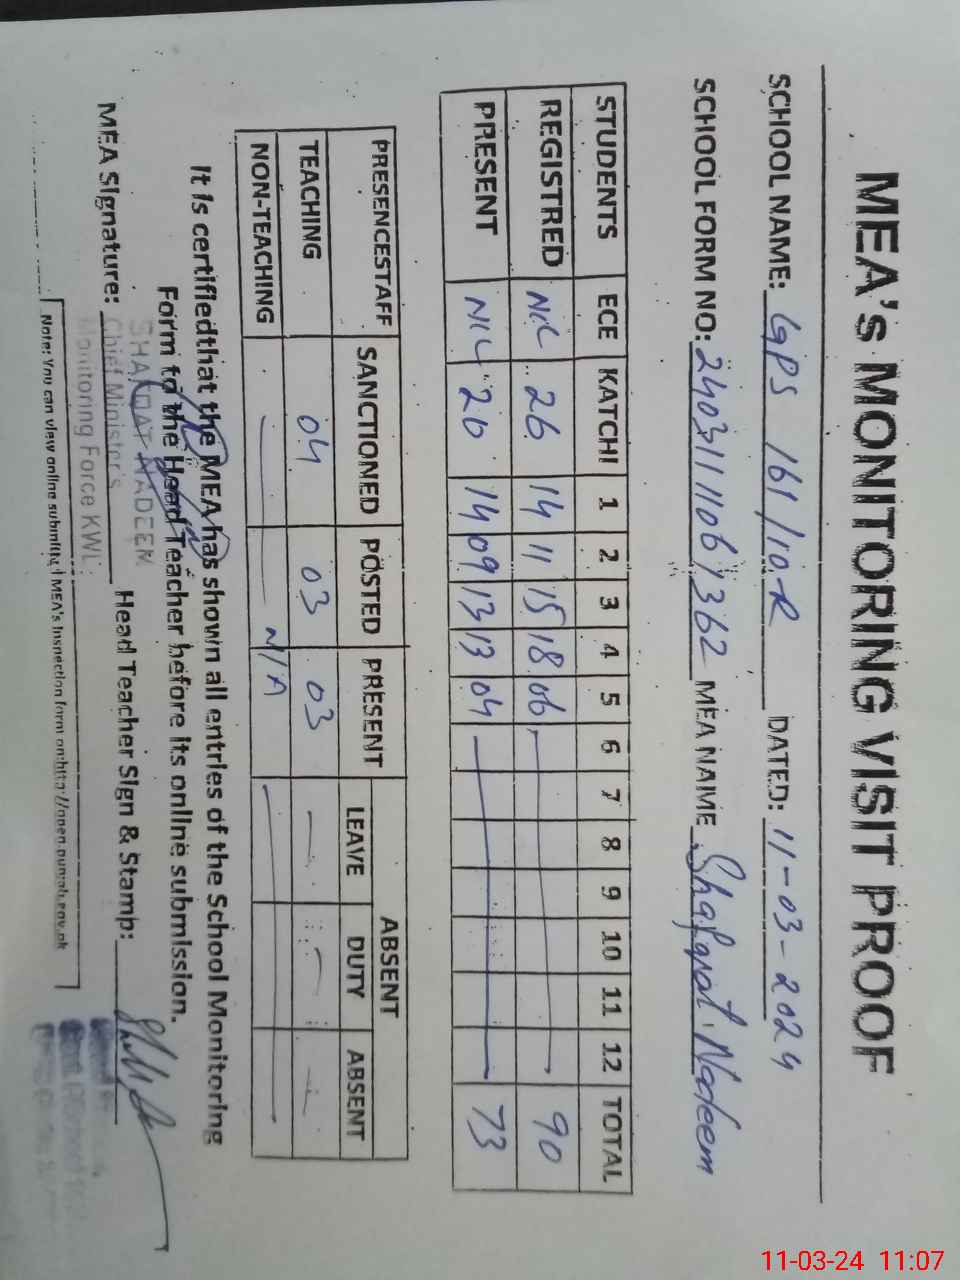 MEA's MONITORING VISIT PROOF
SCHOOL NAME: GPS 161/10-R DATED: 11-03-2024
SCHOOL FORM NO: MEA NAME Shafqat Nadeem
STUDENTS ECE KATCHI 1 2 3 4 5 6 7 8 9 10 11 12 TOTAL
REGISTRED NIL 26 14 11 15 18 06 90
PRESENT NIL 20 14 09 13 13 04 73
PRESENCESTAFF SANCTIONED POSTED PRESENT ABSENT
LEAVE DUTY ABSENT
TEACHING 04 03 03 — — —
NON-TEACHING — — N/A —
It is certifiedthat the MEA has shown all entries of the School Monitoring
Form to the Head Teacher before its online submission.
SHAFQAT NADEEM
MEA Signature: Head Teacher Sign & Stamp:
Chief Minister's
Monitoring Force KWL.
Note: You can view online submitted MEA's Inspection form on:http://open.punjab.gov.pk
11-03-24 11:07